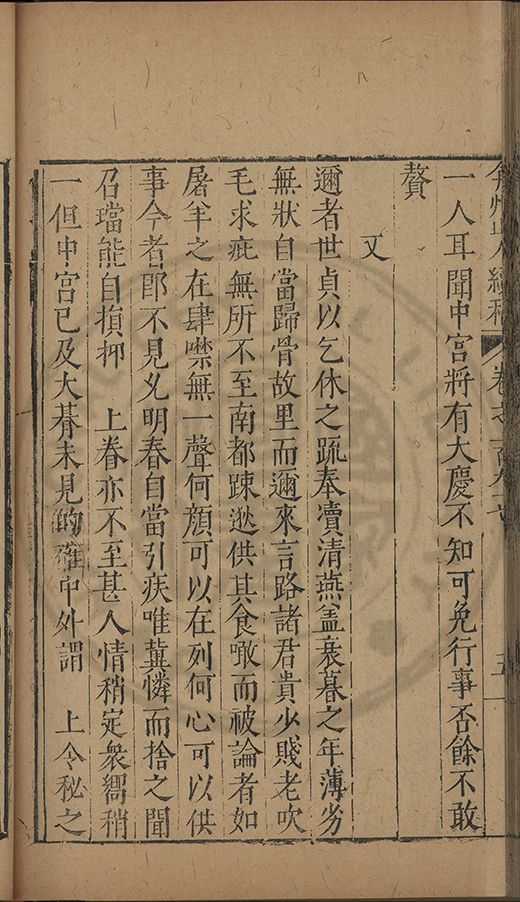 弇州山人續稿 卷之一百九十 五
一人耳聞中宮將有大慶不知可免行事否餘不敢
贅
又
邇者世貞以乞休之疏奉凟清燕盖衰暮之年薄劣
無狀自當歸骨故里而邇來言路諸君貴少賤老吹
毛求疵無所不至南都踈逖供其食噉而被論者如
屠羊之在肆噤無一聲何顔可以在列何心可以供
事今者即不見及明春自當引疾唯冀憐而捨之聞
召璫能自損抑 上眷亦不至甚人情稍定衆囂稍
一但中宮已及大朞未見的確中外謂 上令秘之